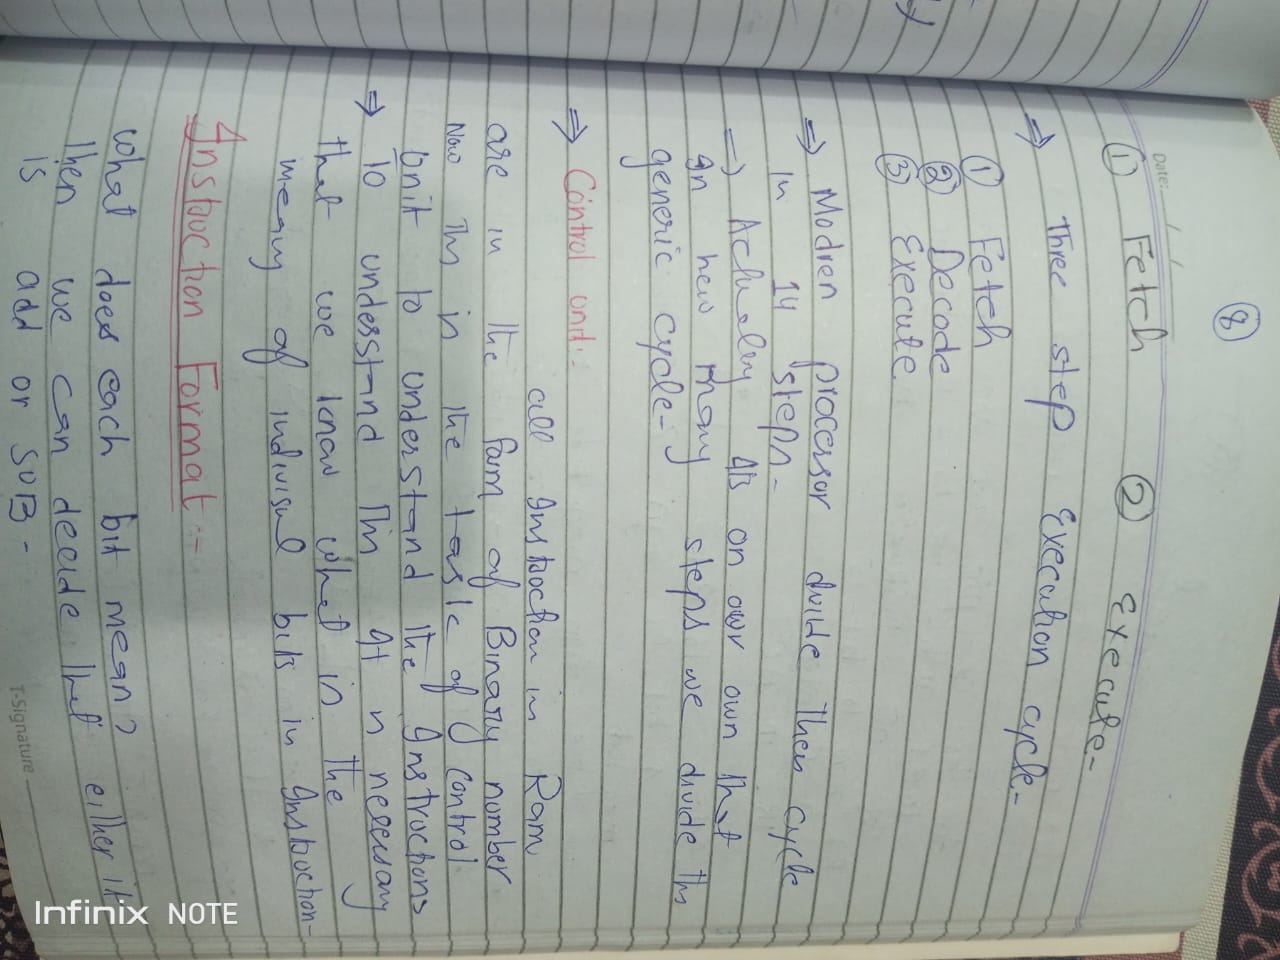 8
Date: / /
① Fetch ② Execute-
⇒ Three step Execution cycle-
① Fetch
② Decode
③ Execute
⇒ Modren processor divide then cycle
In 14 steps-
⇒ Actually on owr own that
In how many steps we divide this
generic cycle-
⇒ Control unit:-
all Instruction in Ram
are in the form of Binary number
Now This is the task of control
Unit to understand the Instructions
⇒ To understand This It is necessary
that we know what is the
meaning of individual bits in Instruction-
Instruction Format :-
What does each bit mean?
Then we can decide that either it
is add or SUB -
T-Signature
Infinix NOTE